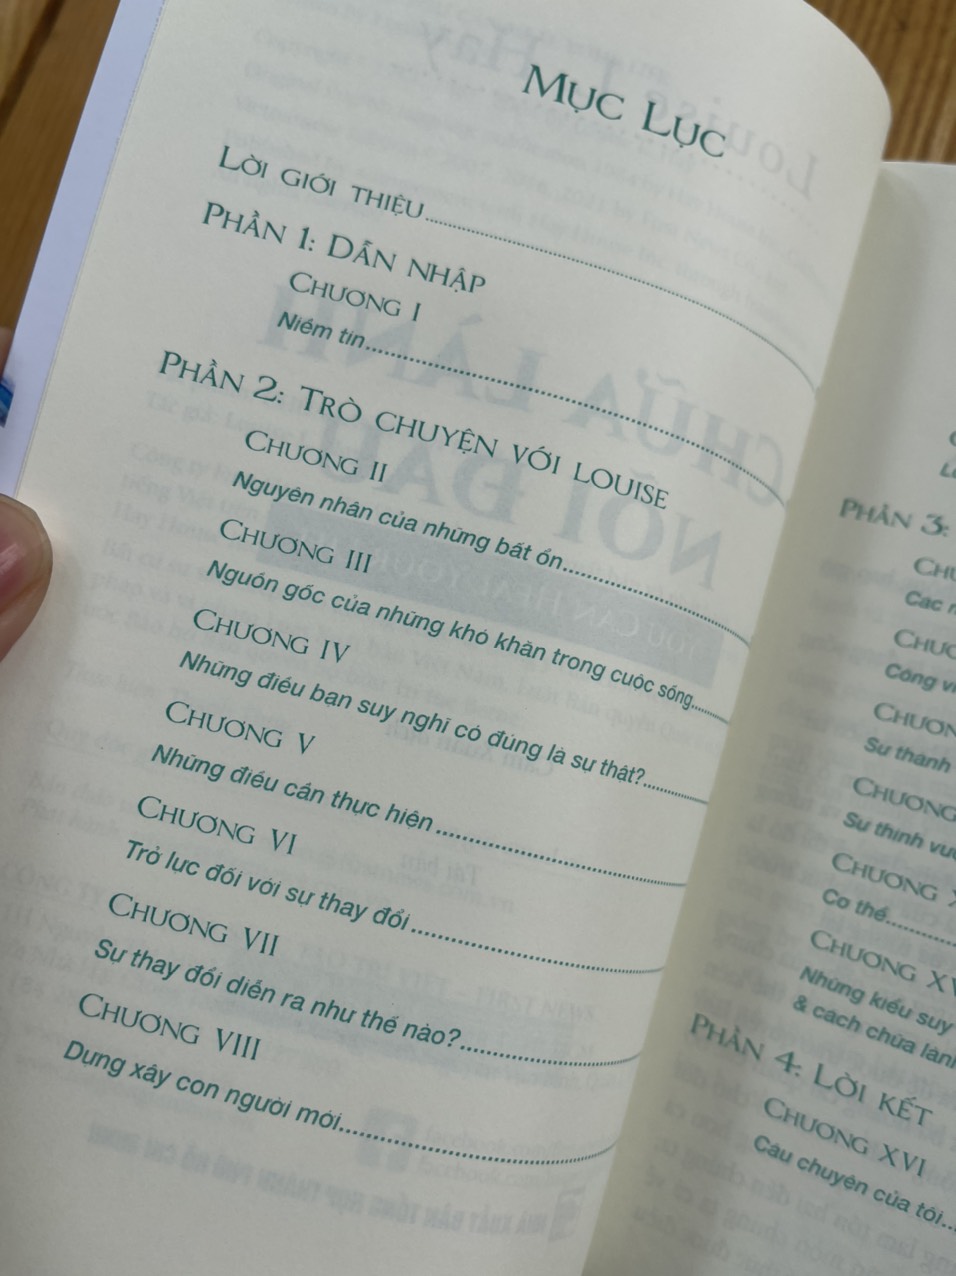 MỤC LỤC
LỜI GIỚI THIỆU
PHẦN 1: DẪN NHẬP
CHƯƠNG I
Niềm tin
PHẦN 2: TRÒ CHUYỆN VỚI LOUISE
CHƯƠNG II
Nguyên nhân của những bất ổn
CHƯƠNG III
Nguồn gốc của những khó khăn trong cuộc sống
CHƯƠNG IV
Những điều bạn suy nghĩ có đúng là sự thật?
CHƯƠNG V
Những điều cần thực hiện
CHƯƠNG VI
Trở lực đối với sự thay đổi
CHƯƠNG VII
Sự thay đổi diễn ra như thế nào?
CHƯƠNG VIII
Dựng xây con người mới
PHẦN 3:
Công
Sự thành
CHƯƠNG
Sự thịnh
CHƯƠNG
Cơ thể
CHƯƠNG
Những kiểu suy
& cách chữa lành
PHẦN 4: LỜI KẾT
CHƯƠNG XVI
Câu chuyện của tôi